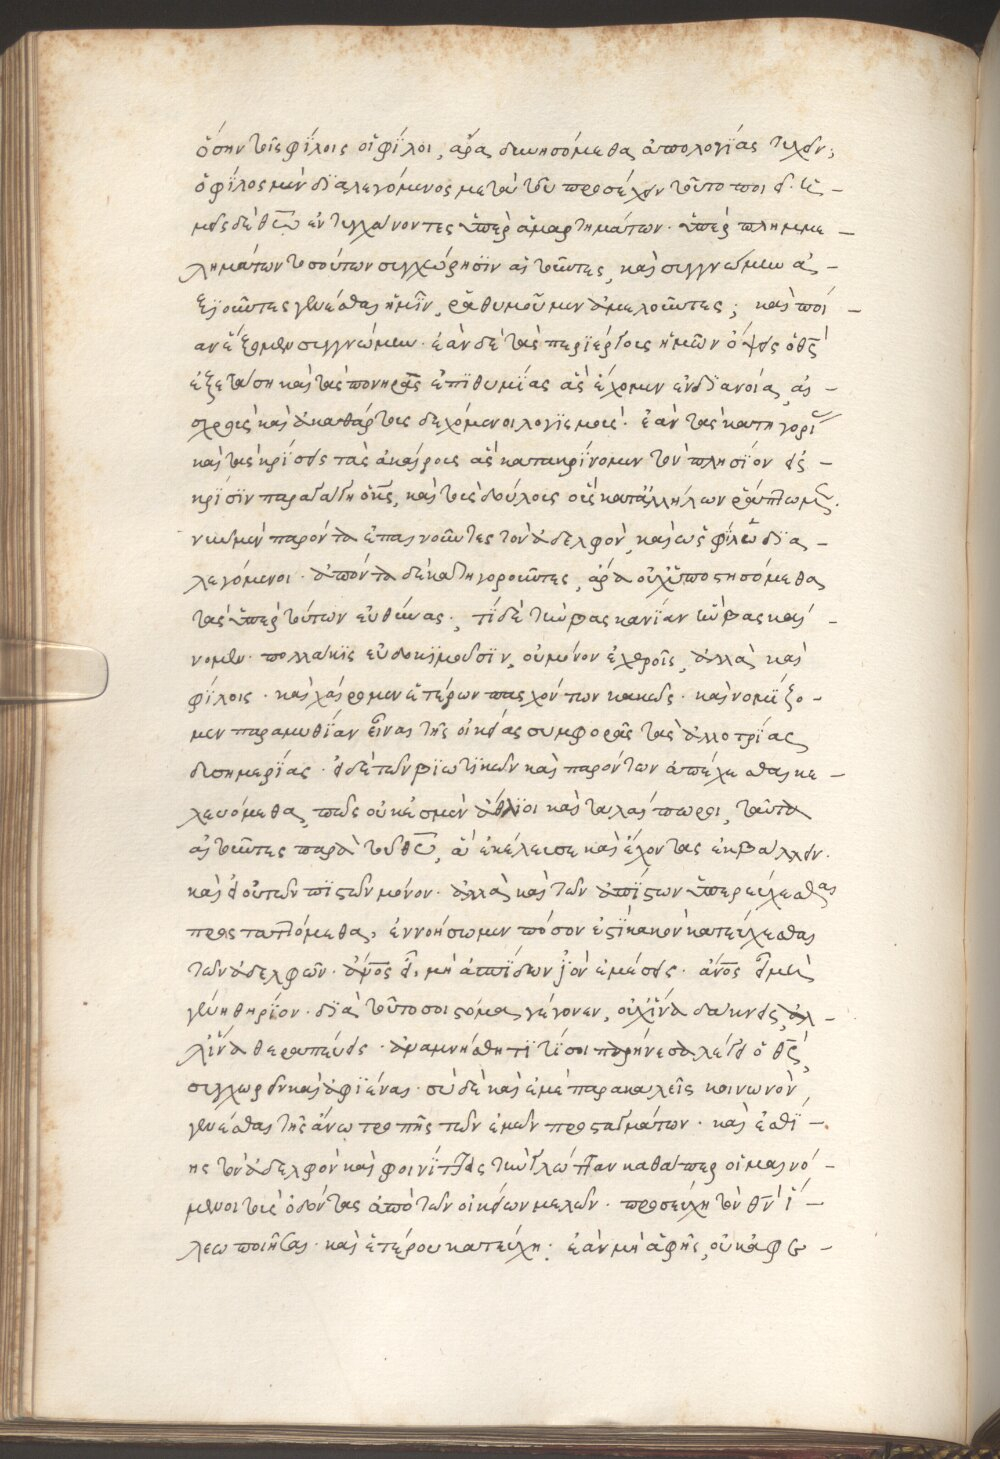 ὅσην τοῖς φίλοις οἱ φίλοι, ἆρα δυνησόμεθα ἀπολογίας τυχεῖν;
ὁ φίλος μὲν διαλεγόμενος μετὰ τοῦ προσέχειν τοῦτο ποιεῖ· ἡ-
μεῖς δὲ θῶ ἐντυγχάνοντες ὑπὲρ ἁμαρτημάτων· ὑπὲρ πλημμε-
λημάτων τοσούτων συγχώρησιν αἰτοῦντες, καὶ συγγνώμην ἀ-
ξιοῦντες γενέσθαι ἡμῖν, ῥαθυμοῦμεν ἀμελοῦντες; καὶ ποί-
αν ἕξομεν συγγνώμην· ἐὰν δὲ τὰς περιέργους ἡμῶν ὄψεις ὁ θς
ἐξετάση καὶ τὰς πονηρὰς ἐπιθυμίας ἃς ἔχομεν ἐν διανοία, αἰ-
σχροὺς καὶ ἀκαθάρτους δεχόμενοι λογισμούς· ἐὰν τὰς κατηγορί
καὶ τὰς κρίσεις τὰς ἀκαίρους ἃς κατακρίνομεν τὸν πλησίον εἰς
κρίσιν παραγάγη ὁ κς, καὶ τοὺς δούλους οὓς κατἀλλήλων ῥάπτομεν·
νῦν μὲν παρόντα ἐπαινοῦντες τὸν ἀδελφὸν, καὶ ὡς φίλω δια-
λεγόμενοι· ἀπόντα δὲ κατηγοροῦντες, ἆρα οὐχ ὑποστησόμεθα
τὰς ὑπὲρ τούτων εὐθύνας·, τί δὲ τὴν βασκανίαν ἣν βασκαί-
νομεν· πολλάκις εὐδοκιμοῦσιν, οὐ μόνον ἐχθροῖς, ἀλλὰ καὶ
φίλοις· καὶ χαίρομεν ἑτέρων πασχόντων κακῶς· καὶ νομίζο-
μεν παραμυθίαν εἶναι τῆς οἰκείας συμφορᾶς τὰς ἀλλοτρίας
δυσημερίας· εἰ δὲ τῶν βιωτικῶν καὶ παρόντων ἀπέχεσθαι κε-
λευόμεθα, πῶς οὐκ ἐσμὲν ἄθλιοι καὶ ταλαίπωροι, ταῦτα
αἰτοῦντες παρὰ τοῦ θῦ, ἃ ἐκέλευσε καὶ ἔχοντας ἐκβάλλειν·
καὶ εἰ οὐ τῶν πιστῶν μόνον· ἀλλὰ καὶ τῶν ἀπίστων ὑπερεύχεσθαι
προσταττόμεθα, ἐννοήσωμεν πόσον ἐστὶ κακὸν κατεύχεσθαι
τῶν ἀδελφῶν· ἄνος εἶ, μὴ ἀσπίδων ἰὸν ἐμέσεις· ἄνος εἶ μὴ
γένη θηρίον· διὰ τοῦτο σοι στόμα γέγονεν, οὐχ ἵνα δάκνεις, ἀλ-
λ' ἵνα θεραπεύεις· ἀναμνήσθητι τί σοι παρήνεσα λέγει ὁ θς,
συγχωρεῖν καὶ ἀφιέναι· σὺ δὲ καὶ ἐμὲ παρακαλεῖς κοινωνὸν
γενέσθαι τῆς ἀνατροπῆς τῶν ἐμῶν προσταγμάτων· καὶ ἐσθί-
ης τὸν ἀδελφὸν καὶ φοινίττεις τὴν γλώτταν καθάπερ οἱ μαινό-
μενοι τοὺς ὀδόντας ἀπὸ τῶν οἰκείων μελῶν· προσεύχη τὸν θν ἵ-
λεω ποιῆσαι· καὶ ἑτέρου κατεύχη· ἐὰν μὴ ἀφῆς, οὐκ ἀφε-